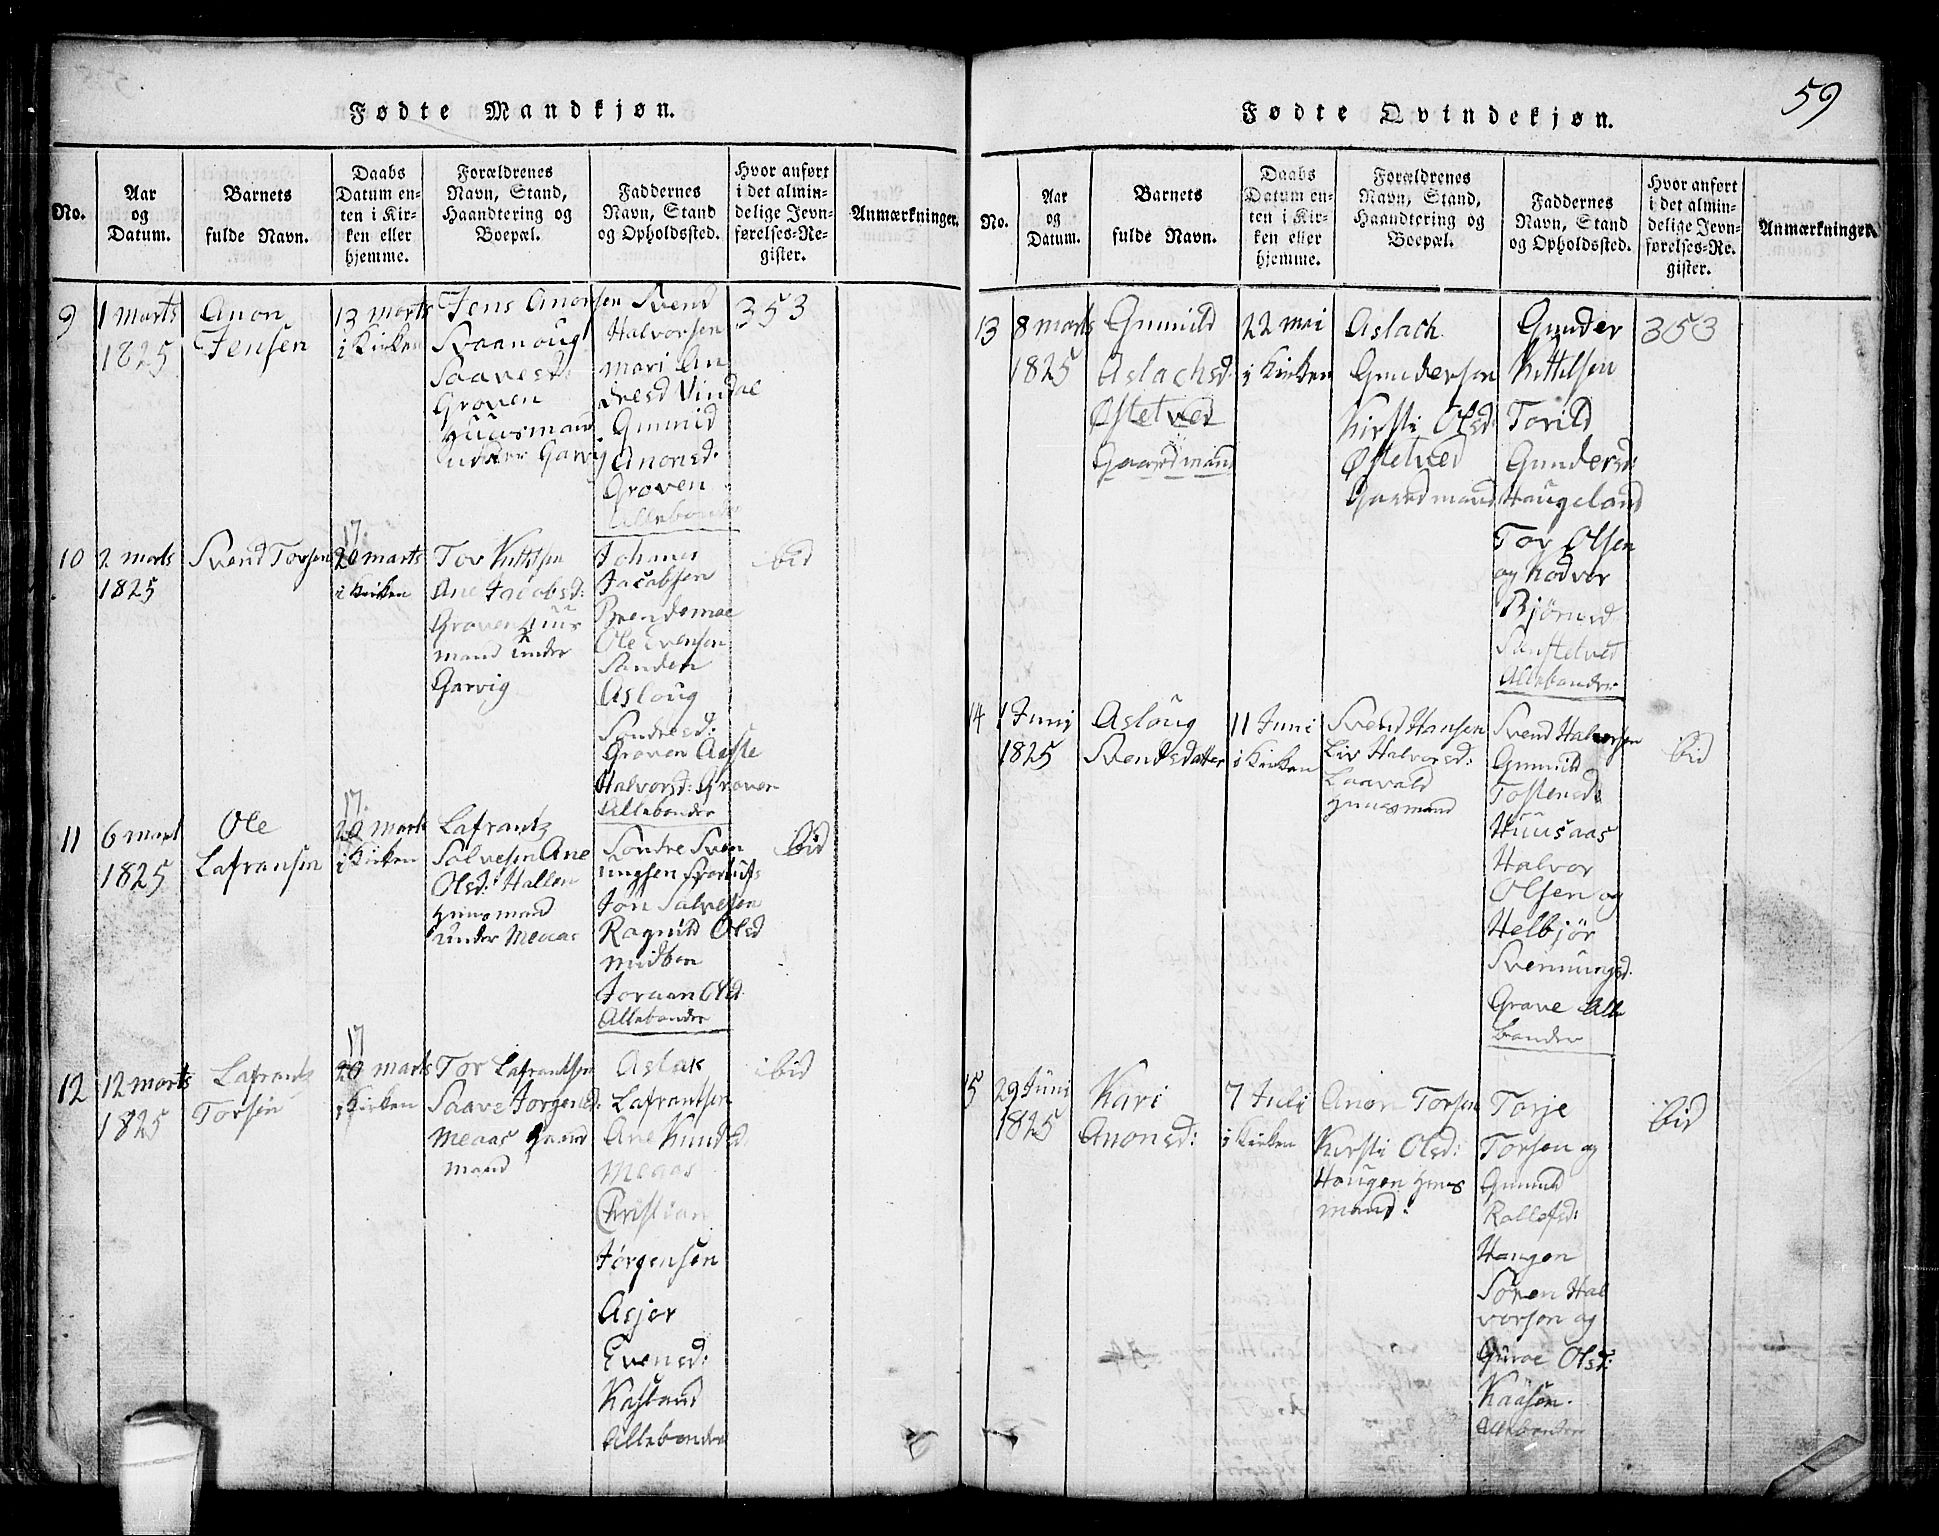 59
Fødte Mandkjøn.
No.
Aar
og
Datum.
Barnets
fulde Navn.
Daabs
Datum en-
ten i Kir-
ken eller
hjemme.
Forældrenes
Navn, Stand,
Haandtering og
Boepæl.
Faddernes
Navn, Stand
og Opholdssted.
Hvor anført
i det almin-
delige Jevn-
førelses-Re-
gister.
Anmærkninger.
9
1 marts
1825
Anon
Jensen
13 marts
i Kirken
Jens Anonsen
Svaanoug
Saavesd:
Groven
Huusmand
under Garvig
Svend
Halvorsen
mari An
dresd Vindal
Gunnild
Anonsd:
Groven
Allebønder
353
10
2 marts
1825
Svend Torsen
17.
20 marts
i Kirken
Tov Kittilsen
Ane Jacobsd:
Groven Huus
mand under
Garvig
Johanes
Jacobsen
Brendemoe
Ole Evensen
Sanden
Asloug
Sondresd:
Groven Aaste
Halvorsd: Groven
Allebønder
ibid
11
6 mart
1825
Ole
Lafransen
17.
20 marts
i Kirken
Lafrantz
Salvesen Ane
Olsd: Hallen
Huusmand
under Meaas
Sondre Sven
ungsen
Jon Salvesen
Ragnild Olsd
midboe
Joraan Olsd
Allebønder
ibid
12
12 marts
1825
Lafrantz
Torsen
17
20 marts
i Kirken
Tor Lafrantsen
Saave Jorgensd:
Meaas Gaard
mand
Aslak
Lafrantsen
Ane Knudsd:
Meaas
Christian
Jørgensen
Asjer
Evensd:
Kasland
Allebønder
ibid
Fødte Qvindekjøn.
No.
Aar
og
Datum.
Barnets
fulde Navn.
Daabs
Datum en-
ten i Kir-
ken eller
hjemme.
Forældrenes
Navn, Stand,
Haandtering og
Boepæl.
Faddernes
Navn, Stand
og Opholdssted.
Hvor anført
i det almin-
delige Jevn-
førelses-Re-
gister.
Anmærkninger.
13
8 marts
1825
Gunnild
Aslachsd:
Østetved
Gaardmand
22 mai
i Kirken
Aslach
Gunderson
Kirsti Olsd:
Østetved
Gaardmand
Gunder
Kittilsen
Torild
Gundersd:
Haugeland
Tov Olsen
og Kodver
Bjørnsd
Sanftetved
Allebønder
353
14
1 Juni
1825
Asloug
Svendsdatter
11 Juni
i Kirken
Svend Hansen
Liv Halvorsd:
Laavald
Huusmand
Svend Halvorsen
Gunnild
Tostensd:
Huusaas
Halvor
Olsen og
Helbjør
Svennungsd:
Grave Alle
bønder
ibid
15
29 Juni
1825
Kari
Anonsd:
7 Juli
i Kirken
Anon Torsen
Kirsti Olsd:
Haugen Huus
mand.
Torje
Torsen og
Gunnild
Rollefsd:
Haugen
Søren Hal
vorsen og
Guroe Olsd:
Kaasen.
Allebønder
ibid